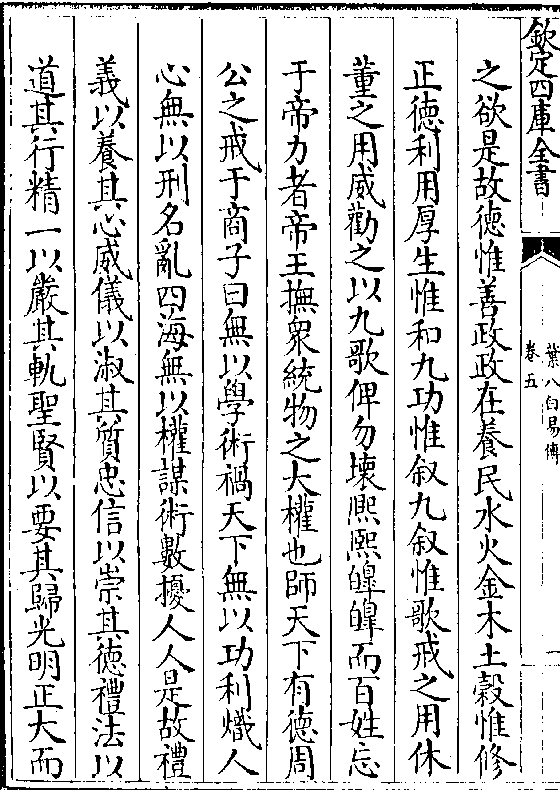 欽定四庫全書
葉八白易傳
卷五
之欲是故徳惟善政政在養民水火金木土榖惟修
正徳利用厚生惟和九功惟叙九叙惟歌戒之用休
董之用威勸之以九歌俾勿壊熈熈皥皥而百姓忘
于帝力者帝王撫衆統物之大權也師天下有徳周
公之戒于商子曰無以學術禍天下無以功利熾人
心無以刑名亂四海無以權謀術數擾人人是故禮
義以養其心威儀以淑其質忠信以崇其徳禮法以
道其行精一以嚴其軌聖賢以要其歸光明正大而